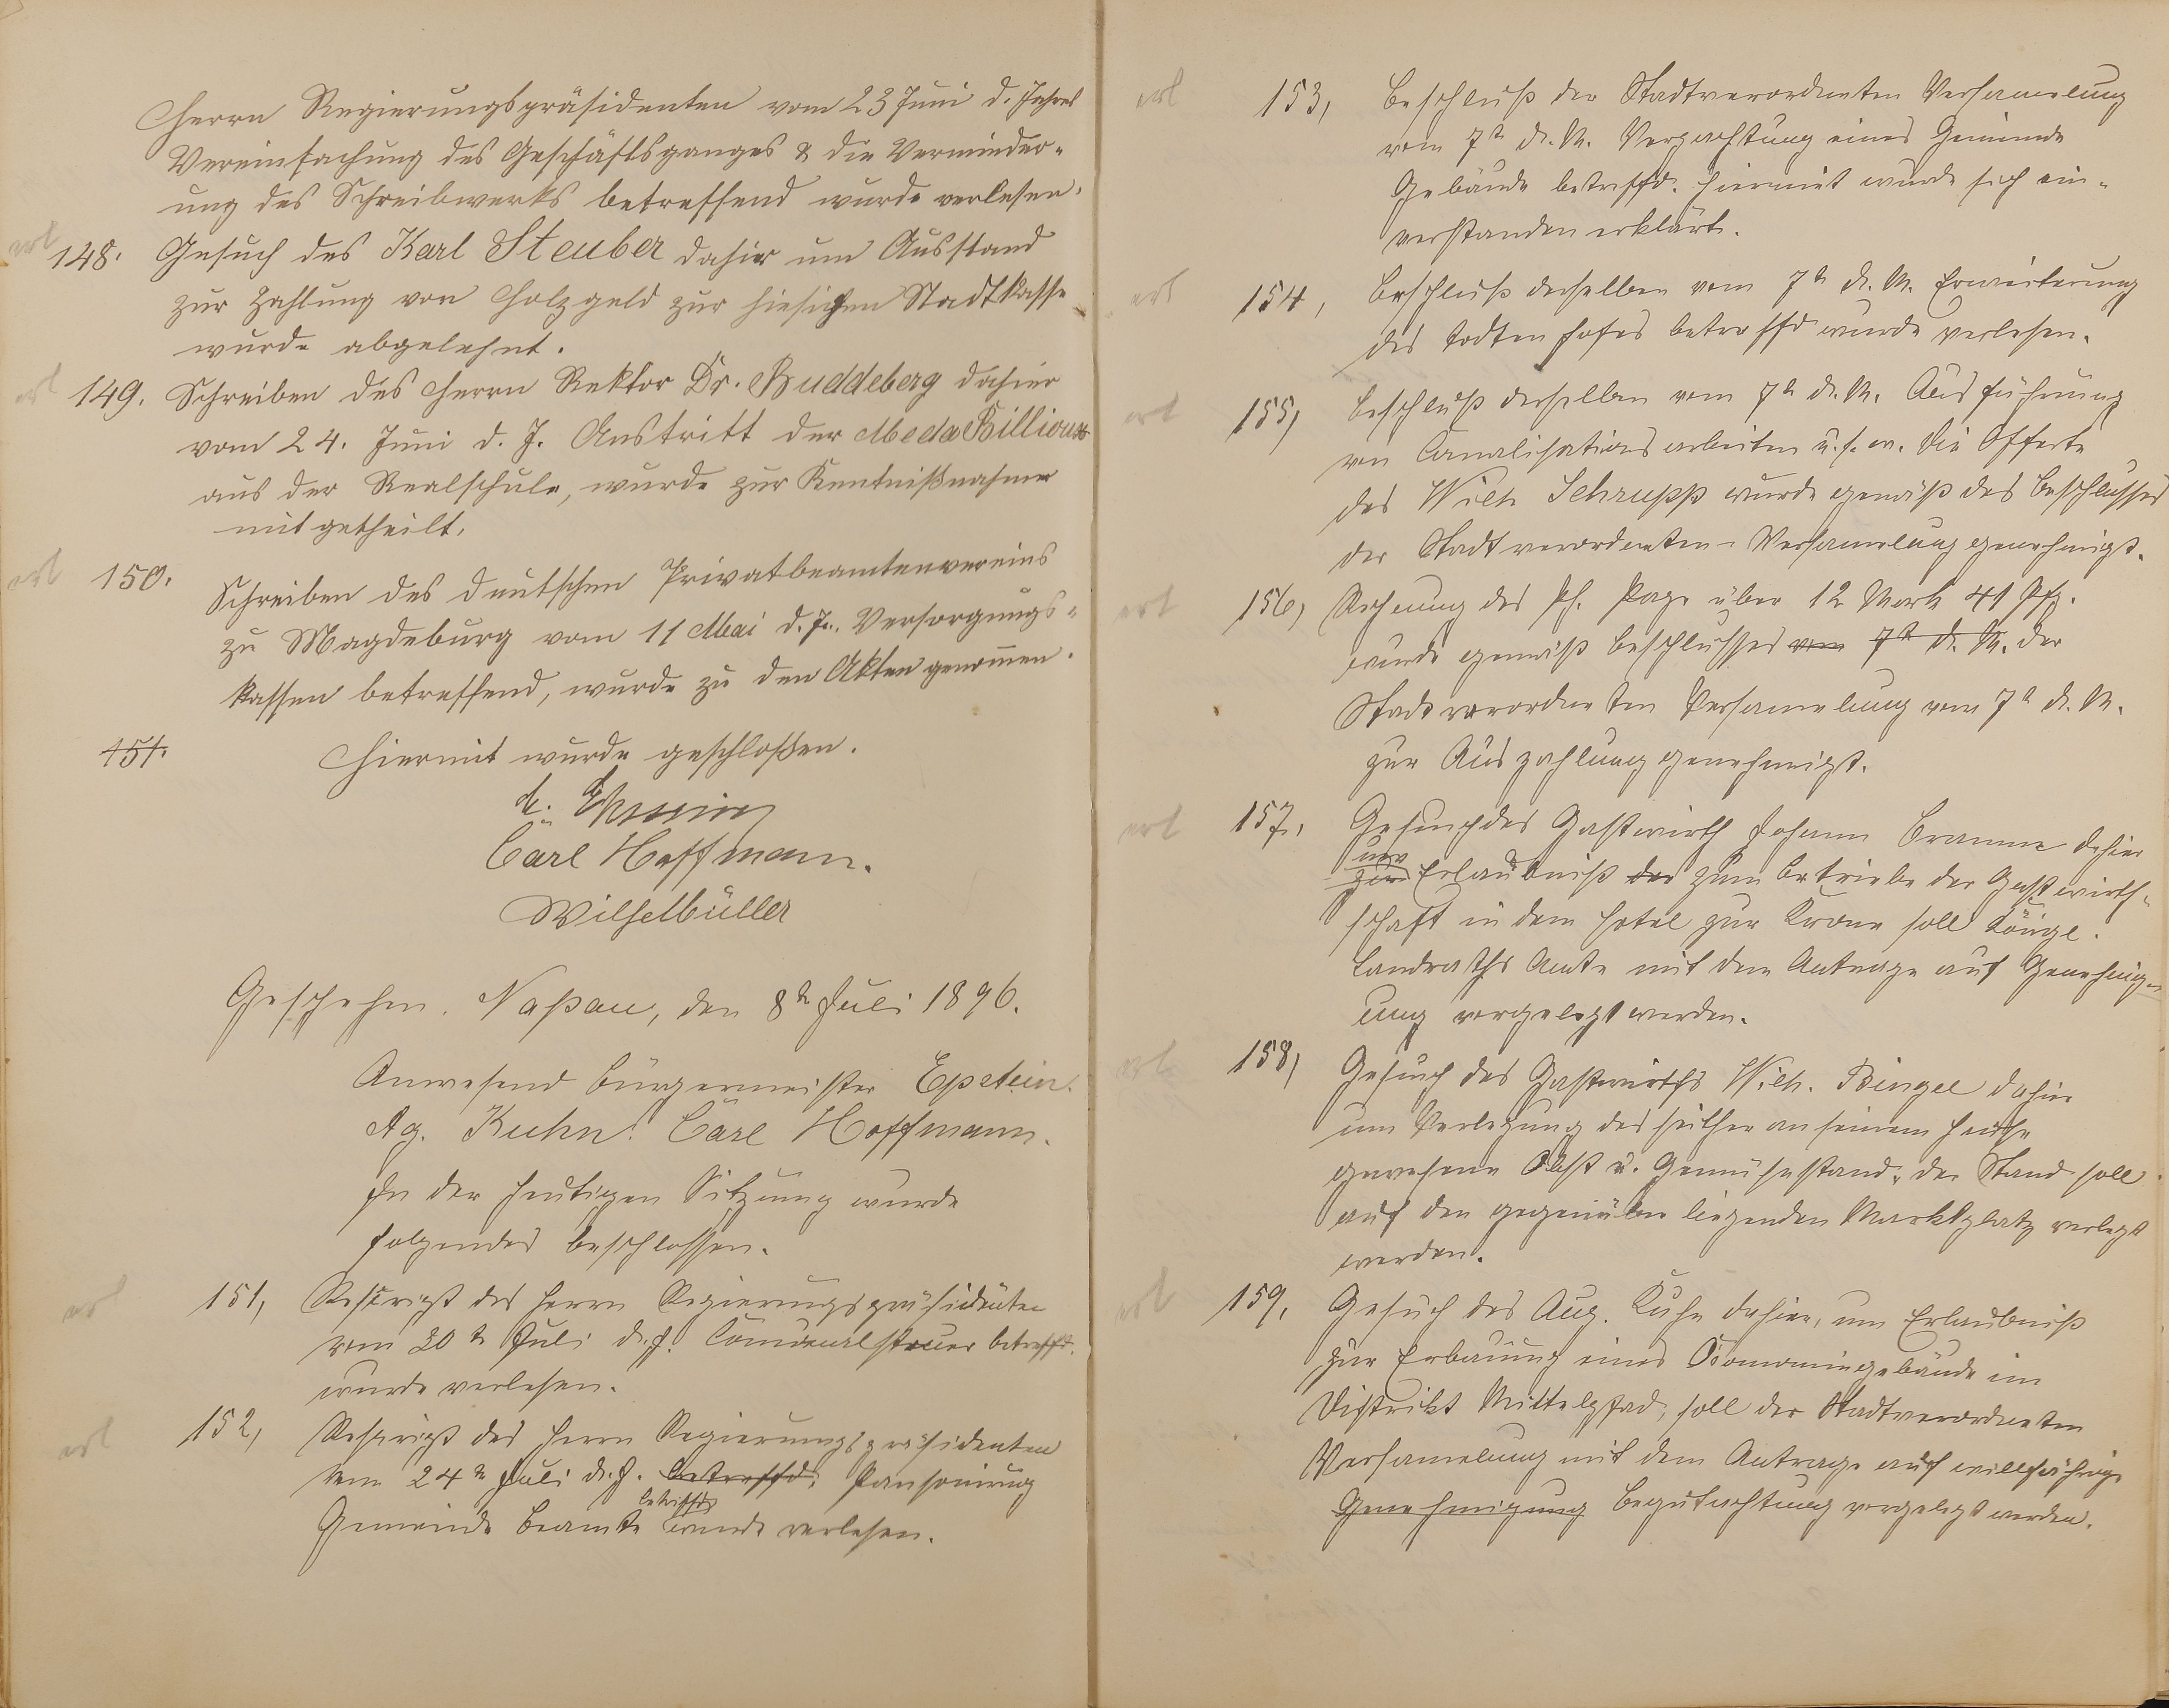 Herrn Regierungspräsidenten vom 23 Juni d. Jahres
Vereinfachung des Geschäftsganges & die Verminder-
ung des Schreibwerks betreffend wurde verlesen.
erl
148. Gesuch des Karl Steuber dahier um Ausstand
zur Zahlung von Holzgeld zur hiesigen Stadtkasse
wurde abgelehnt.
erl
149. Schreiben des Herrn Rektor Dr. Buddeberg dahier
vom 24. Juni d. J. Austritt der Meda
aus der Realschule, wurde zur Kentnißnahme
mitgetheilt.
erl
150. Schreiben des deutschen Privatbeamtenvereins
zu Magdeburg vom 11 Mai d. J. Versorgungs-
kassen betreffend, wurde zu den Akten genommen.
151. Hiermit wurde geschloßen.
Carl Hoffmann.
Geschehen. Naßau, den 8ten Juli 1896.
Anwesend Bürgermeister Epstein.
Ag. Kuhn. Carl Hoffmann.
In der heutigen Sitzung wurde
folgendes beschlossen.
erl
151, Rescript des Herrn Regierungspräsidenten
vom 30ten Juli d. J. betreffd.
wurde verlesen.
erl
152, Rescript des Herrn Regierungspräsidenten
vom 24ten Juli d. J. betreffd. Pensonirung
betreffd
Gemeinde Beamte wurde verlesen.
erl
153, Beschluß der Stadtverordneten Versamelung
vom 7ten d. M. Verpachtung eines Gemeinde
Gebäude betreffd. hiermit wurde sich ein-
verstanden erklärt.
erl
154, Beschluß derselben vom 7ten d. M. Erweiterung
des Todtenhofes betreffd wurde verlesen.
erl
155, Beschluß derselben vom 7ten d. M. Ausführung
von Canalisationsarbeiten u. s. w. Die Offerte
des Wilh. Schrupp wurde gemäß des Beschlusses
der Stadtverordneten-Versamelung genehmigt.
erl
156, Rechnung des Ph. über 12 Mark 41 Pfg.
wurde gemäß Beschlusses vom 7ten d. M. der
Stadtverordneten Versamelung vom 7ten d. M.
zur Auszahlung genehmigt.
erl
157, Gesuch des Gastwirth Johann Bramm dahier
um
zur Erlaubniß der zum Betriebe der Gastwirth-
schaft in dem Hotel zur Krone soll Königl.
Landraths Amte mit dem Antrage auf Genehmig-
ung vorgelegt werden.
erl
158, Gesuch des Gastwirths Wilh. Bingel dahier
um Verlegung des seither an seinem Hause
gewesene Obst u. Gemüsestand, der Stand soll
auf den gegenüber liegenden Marktplatz verlegt
werden.
erl
159, Gesuch des Aug. Kuhn dahier, um Erlaubniß
zur Erbauung eines Öconomiegebäude im
Distrikt Mittelpfad, soll der Stadtverordneten
Versamelung mit dem Antrage auf willfährige
Genehmigung Begutachtung vorgelegt werden.